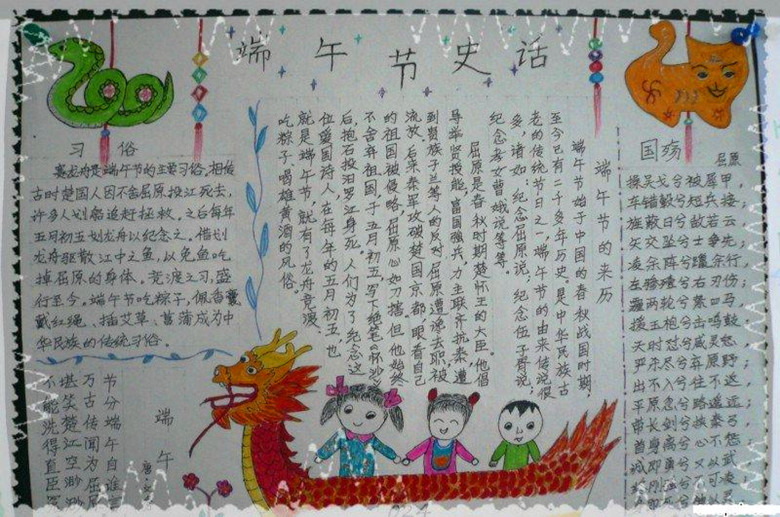 端午节史话
习俗
赛龙舟是端午节的主要习俗。相传
古时楚国人因不舍屈原投江死去，
许多人划船追赶拯救。之后每年
五月初五划龙舟以纪念之。借划
龙舟驱散江中之鱼，以免鱼吃
掉屈原的身体。竞渡之习，盛
行至今。端午节吃粽子，佩香囊
戴红绳、插艾草、菖蒲成为中
华民族的传统习俗。
端午节的来历
端午节始于中国的春秋战国时期，
至今已有二千多年历史，是中华民族古
老的传统节日之一，端午节的由来传说很
多，诸如：纪念屈原说；纪念伍子胥说；
纪念孝女曹娥说等等。
屈原是春秋时期楚怀王的大臣。他倡
导举贤授能，富国强兵，力主联齐抗秦，遭
到贵族子兰等人的反对，屈原遭谗去职，被
流放。后来秦军攻破楚国京都，眼看自己
的祖国被侵略，屈原心如刀割，但他始终
不舍弃祖国，于五月初五，写下绝笔《怀沙》
后，抱石投汨罗江身死。人们为了纪念这
位爱国诗人，在每年的五月初五，也
就是端午节，就有了龙舟竞渡、
吃粽子、喝雄黄酒的风俗。
国殇
屈原
操吴戈兮被犀甲，
车错毂兮短兵接；
旌蔽日兮敌若云
矢交坠兮士争先；
凌余阵兮躐余行，
左骖殪兮右刃伤；
霾两轮兮絷四马，
援玉枹兮击鸣鼓
天时怼兮威灵怒，
严杀尽兮弃原野；
出不入兮往不返，
平原忽兮路遥远；
带长剑兮挟秦弓，
首身离兮心不惩；
诚既勇兮又以武
终刚强兮不可凌
端午
唐·文
节分端午自谁言
万古传闻为屈
堪笑楚江空渺
不能洗得直臣